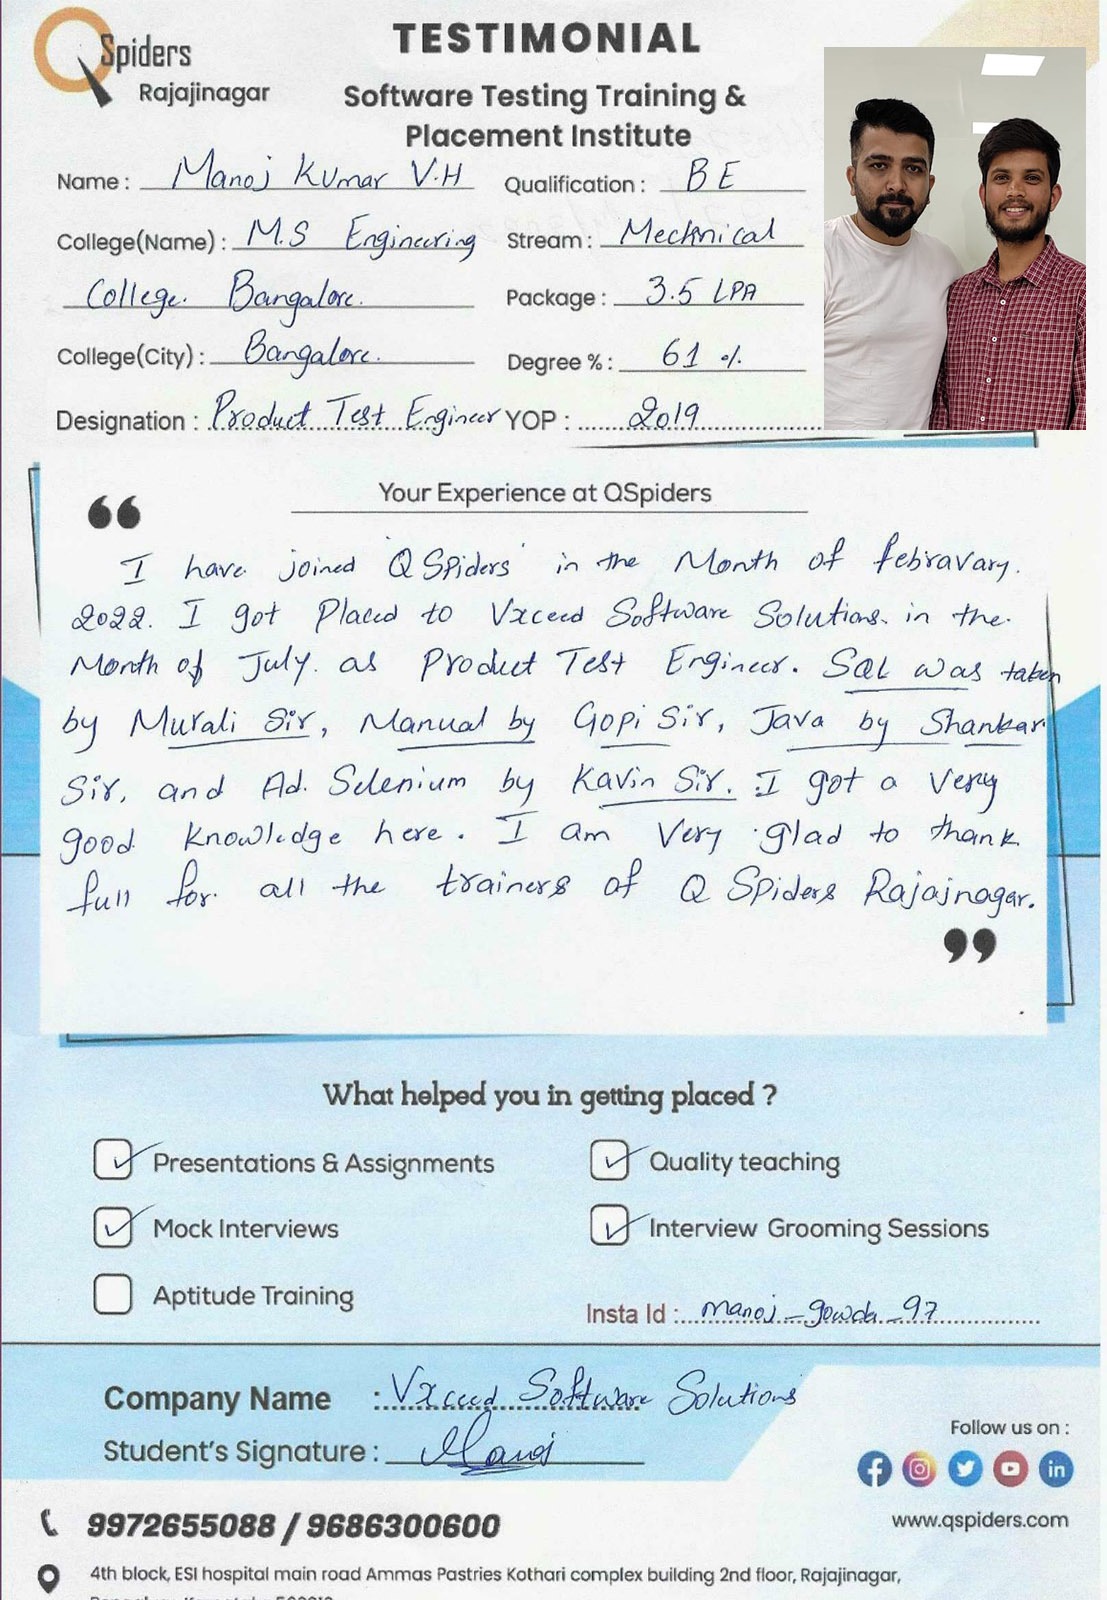 QSpiders
Rajajinagar
TESTIMONIAL
Software Testing Training &
Placement Institute
Name : Manoj Kumar V.H
Qualification : BE
College(Name) : M.S Engineering
Stream : Mechnical
College. Bangalore.
Package : 3.5 LPA
College(City) : Bangalore.
Degree % : 61 %
Designation : Product Test Engineer
YOP : 2019
Your Experience at QSpiders
“
I have joined 'Q Spiders' in the Month of febravary.
2022. I got Placed to Vxceed Software Solutions. in the.
Month of July. as Product Test Engineer. SQL was taken
by Murali Sir, Manual by Gopi Sir, Java by Shankar
Sir, and Ad. Selenium by Kavin Sir. I got a Very
good knowledge here. I am Very glad to thank
full for. all the trainers of Q Spiders Rajajnagar.
”
What helped you in getting placed ?
Presentations & Assignments
Quality teaching
Mock Interviews
Interview Grooming Sessions
Aptitude Training
Insta Id : manoj_gowda_97
Company Name : Vxceed Software Solutions
Student's Signature : Manoj
Follow us on :
www.qspiders.com
9972655088 / 9686300600
4th block, ESI hospital main road Ammas Pastries Kothari complex building 2nd floor, Rajajinagar,